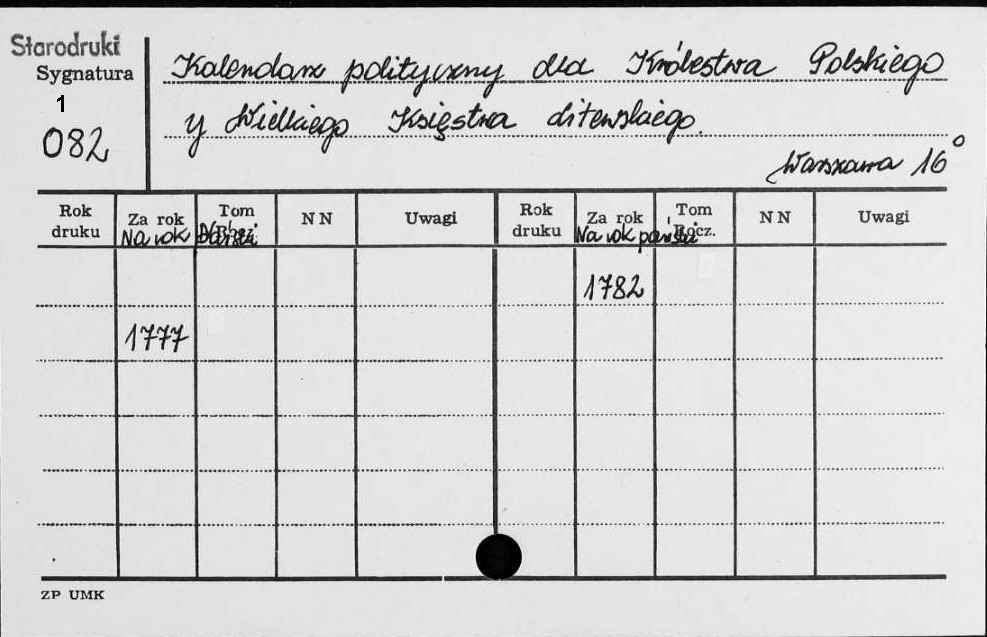 Starodruki
Sygnatura
1
082
Kalendarz polityczny dla Królestwa Polskiego
y Wielkiego Księstwa Litewskiego.
Warszawa 16°
Rok druku Za rok Tom Rocz. N N Uwagi Rok druku Za rok Tom Rocz. N N Uwagi
Na rok Pański Na rok pański
1782
1777
ZP UMK